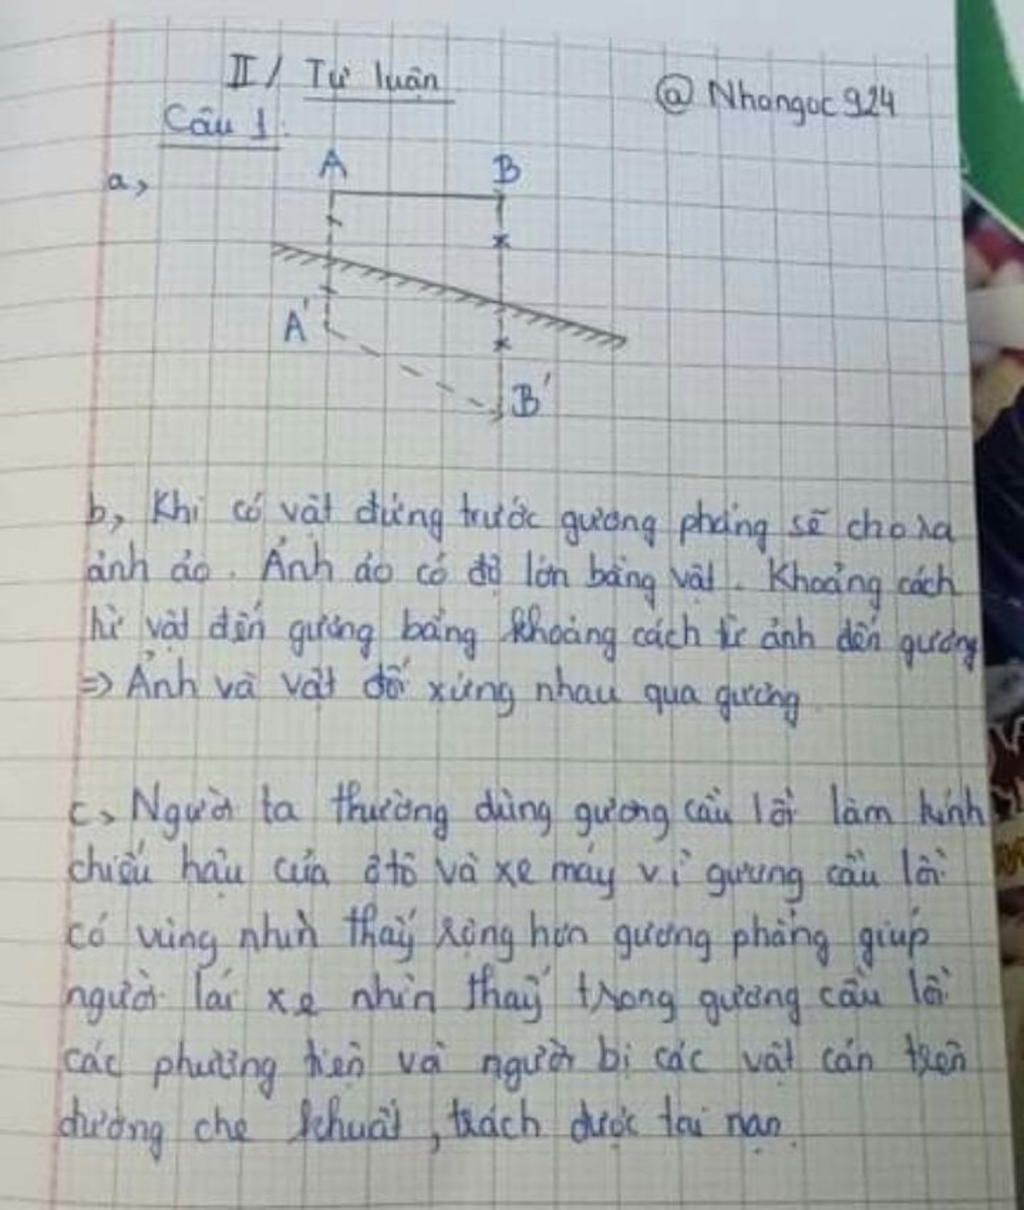 II/ Tự luận
@ Nhongoc924
Câu 1:
a,
A B
A'
B'
b, Khi có vật đứng trước gương phẳng sẽ cho ra
ảnh ảo. Ảnh ảo có độ lớn bằng vật. Khoảng cách
từ vật đến gương bằng khoảng cách từ ảnh đến gương
=> Ảnh và vật đối xứng nhau qua gương
c, Người ta thường dùng gương cầu lồi làm kính
chiếu hậu của ôtô và xe máy vì gương cầu lồi
có vùng nhìn thấy rộng hơn gương phẳng giúp
người lái xe nhìn thấy trong gương cầu lồi
các phương tiện và người bị các vật cản trên
đường che khuất, trách được tai nạn.